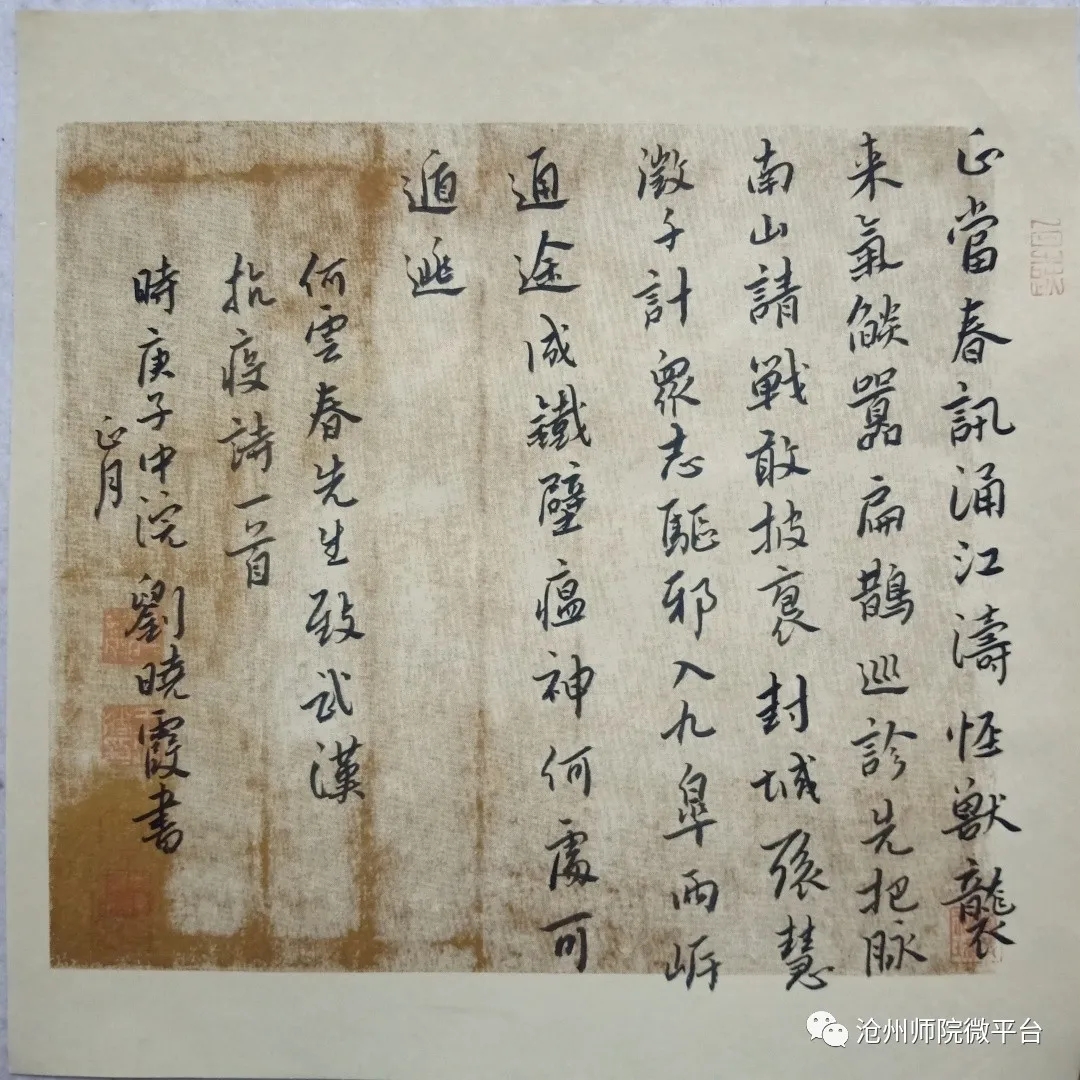 正當春訊涌江濤怪獸襲
来氣燄囂扁鵲巡診先把脉
南山請戰敢披裹封城張慧
徵千計眾志驅邪入九皐両岍
通途成鐵壁瘟神何處可
遁逃
何雲春先生致武漢
抗疫詩一首
時庚子中浣劉曉霞書
正月
沧州师院微平台